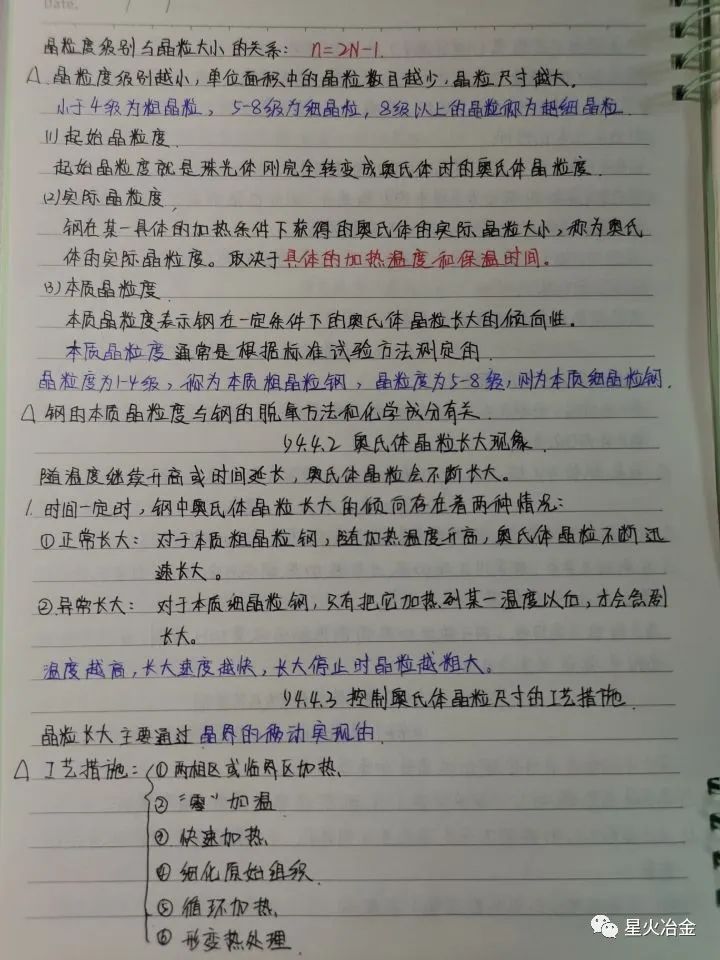 Date.
晶粒度级别与晶粒大小的关系: n=2N-1.
△ 晶粒度级别越小,单位面积中的晶粒数目越少,晶粒尺寸越大.
小于4级为粗晶粒, 5-8级为细晶粒, 8级以上的晶粒称为超细晶粒.
(1)起始晶粒度.
起始晶粒度就是珠光体刚完全转变成奥氏体时的奥氏体晶粒度.
(2)实际晶粒度.
钢在某一具体的加热条件下获得的奥氏体的实际晶粒大小,称为奥氏
体的实际晶粒度。取决于具体的加热温度和保温时间。
(3)本质晶粒度.
本质晶粒度表示钢在一定条件下的奥氏体晶粒长大的倾向性。
本质晶粒度通常是根据标准试验方法测定的.
晶粒度为1-4级,称为本质粗晶粒钢, 晶粒度为5-8级,则为本质细晶粒钢.
△ 钢的本质晶粒度与钢的脱氧方法和化学成分有关.
§4.4.2 奥氏体晶粒长大现象.
随温度继续升高或时间延长,奥氏体晶粒会不断长大。
1. 时间一定时,钢中奥氏体晶粒长大的倾向存在着两种情况:
①正常长大: 对于本质粗晶粒钢,随加热温度升高,奥氏体晶粒不断迅
速长大。
②异常长大: 对于本质细晶粒钢,只有把它加热到某一温度以后,才会急剧
长大。
温度越高,长大速度越快,长大停止时晶粒越粗大。
§4.4.3 控制奥氏体晶粒尺寸的工艺措施.
晶粒长大主要通过晶界的移动实现的.
△ 工艺措施: ①两相区或临界区加热.
②"零"加温.
③快速加热.
④细化原始组织.
⑤循环加热.
⑥形变热处理.
星火冶金